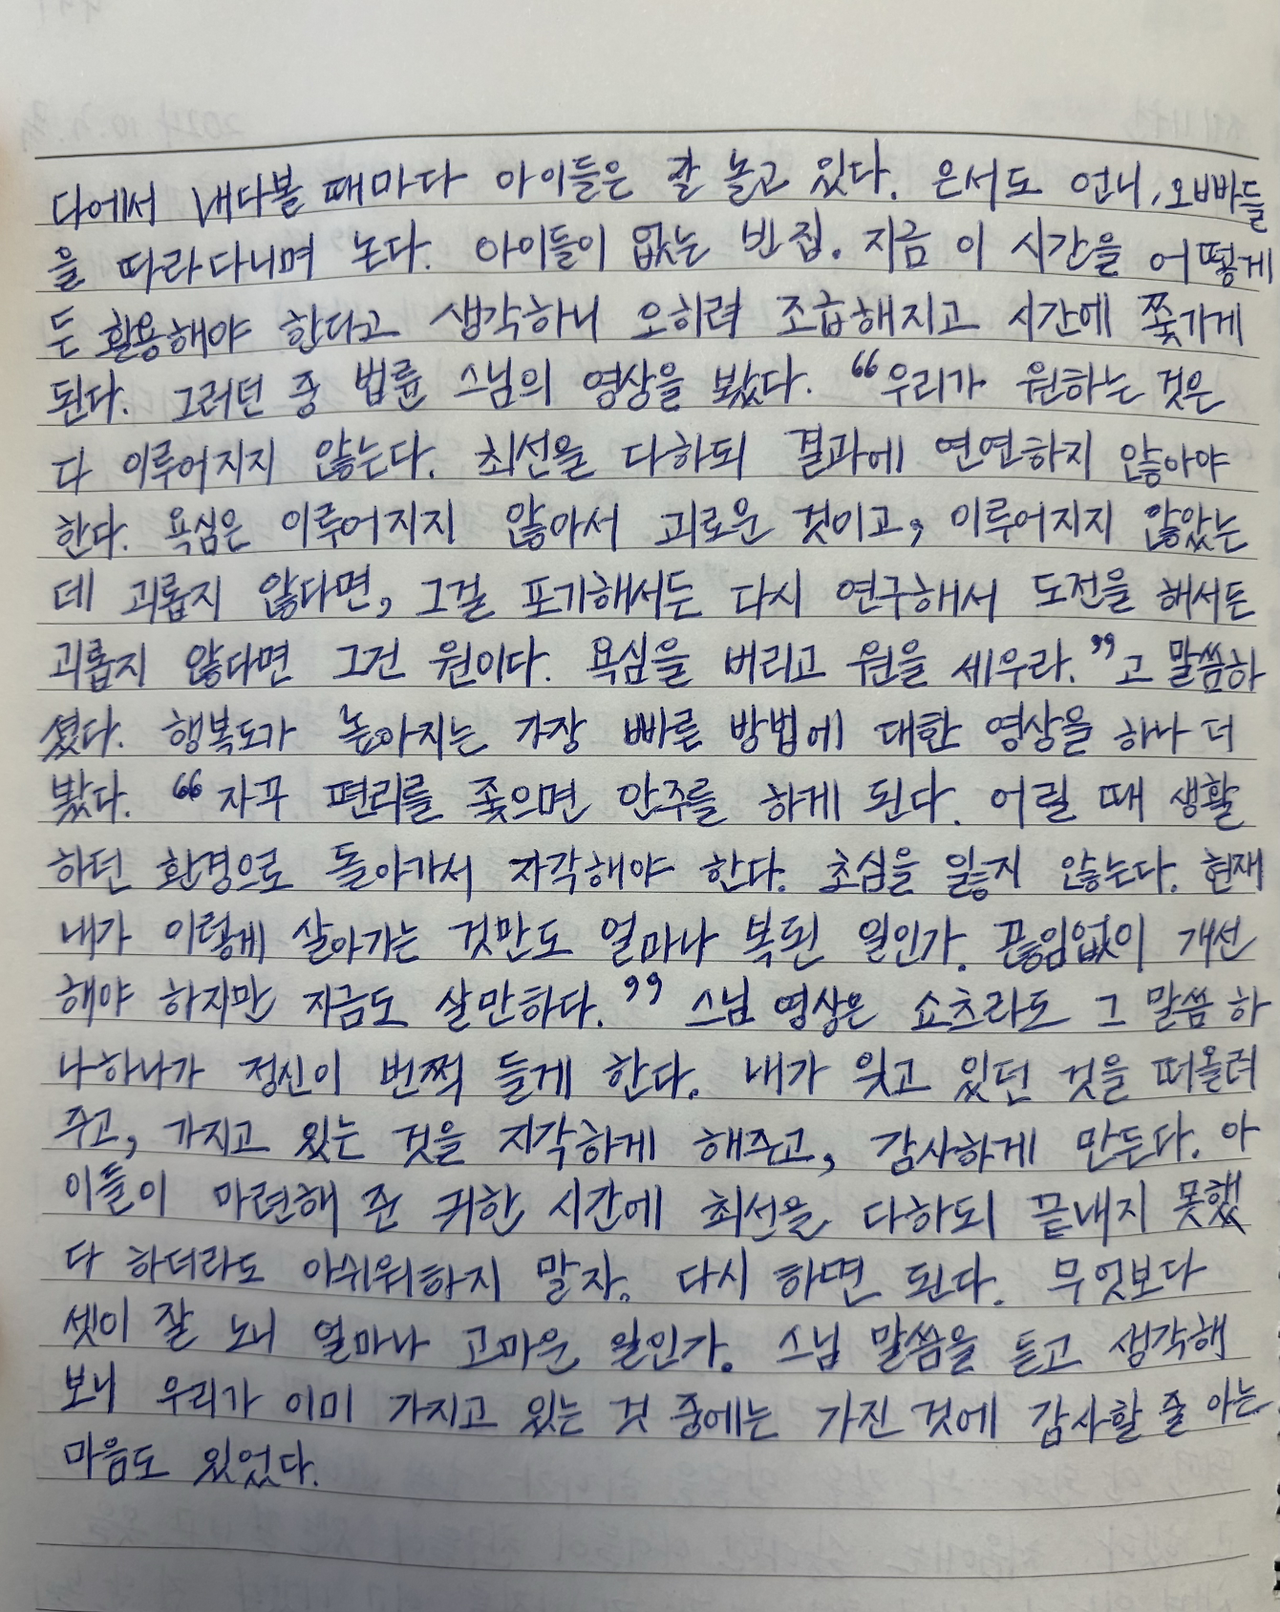 다에서 내다볼 때마다 아이들은 잘 놀고 있다. 은서도 언니, 오빠들
을 따라다니며 논다. 아이들이 없는 빈 집. 지금 이 시간을 어떻게
든 활용해야 한다고 생각하니 오히려 조급해지고 시간에 쫓기게
된다. 그러던 중 법륜 스님의 영상을 봤다. “우리가 원하는 것은
다 이루어지지 않는다. 최선을 다하되 결과에 연연하지 않아야
한다. 욕심은 이루어지지 않아서 괴로운 것이고, 이루어지지 않았는
데 괴롭지 않다면, 그걸 포기해서든 다시 연구해서 도전을 해서든
괴롭지 않다면 그건 원이다. 욕심을 버리고 원을 세우라.”고 말씀하
셨다. 행복도가 높아지는 가장 빠른 방법에 대한 영상을 하나 더
봤다. “자꾸 편리를 좇으면 안주를 하게 된다. 어릴 때 생활
하던 환경으로 돌아가서 자각해야 한다. 초심을 잃지 않는다. 현재
내가 이렇게 살아가는 것만도 얼마나 복된 일인가. 끊임없이 개선
해야 하지만 지금도 살만하다.” 스님 영상은 쇼츠라도 그 말씀 하
나하나가 정신이 번쩍 들게 한다. 내가 잊고 있던 것을 떠올려
주고, 가지고 있는 것을 지각하게 해주고, 감사하게 만든다. 아
이들이 마련해 준 귀한 시간에 최선을 다하되 끝내지 못했
다 하더라도 아쉬워하지 말자. 다시 하면 된다. 무엇보다
셋이 잘 노니 얼마나 고마운 일인가. 스님 말씀을 듣고 생각해
보니 우리가 이미 가지고 있는 것 중에는 가진 것에 감사할 줄 아는
마음도 있었다.